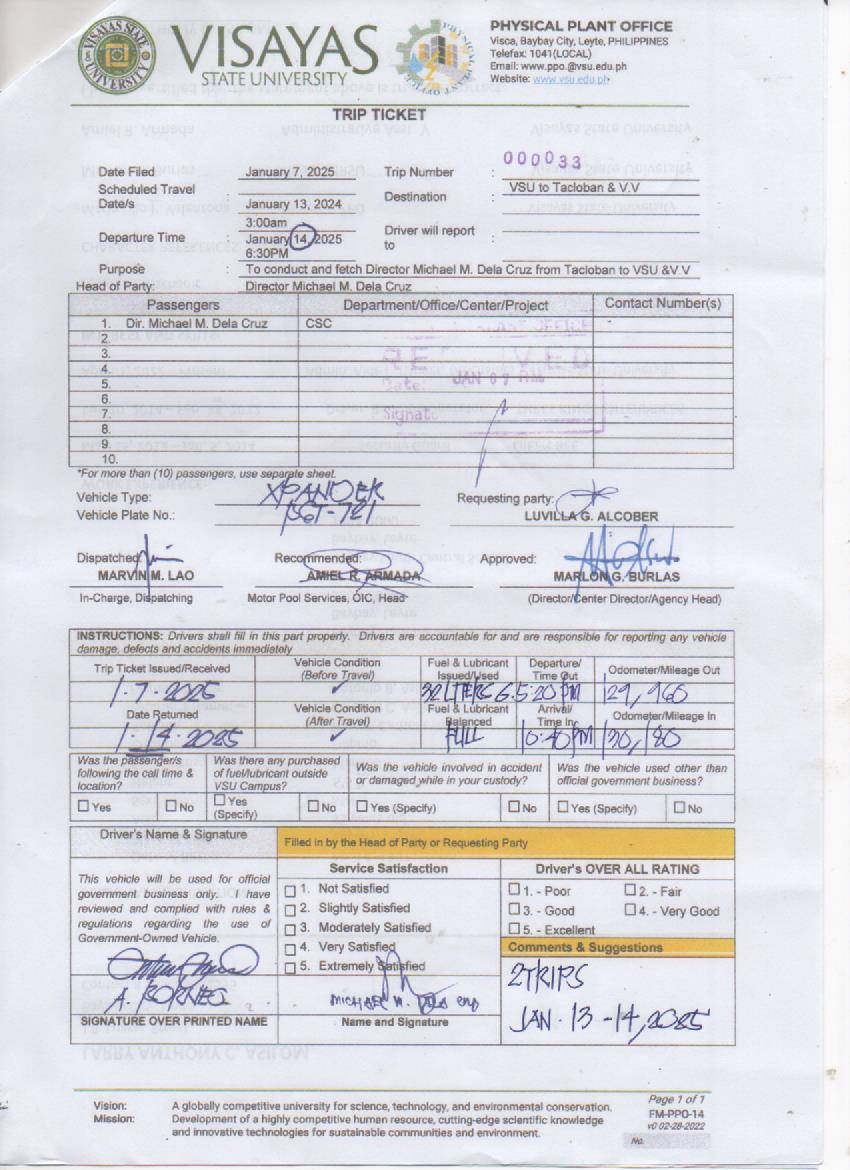 VISAYAS
STATE UNIVERSITY
VISAYAS STATE UNIVERSITY
PHYSICAL PLANT OFFICE
Visca, Baybay City, Leyte, PHILIPPINES
Telefax: 1041(LOCAL)
Email: www.ppo.@vsu.edu.ph
Website: www.vsu.edu.ph
TRIP TICKET
Date Filed : January 7, 2025 Trip Number : 000033
Scheduled Travel Date/s : January 13, 2024 Destination : VSU to Tacloban & V.V
3:00am
Departure Time : January 14, 2025 Driver will report to :
6:30PM
Purpose : To conduct and fetch Director Michael M. Dela Cruz from Tacloban to VSU &V.V
Head of Party: Director Michael M. Dela Cruz
Passengers Department/Office/Center/Project Contact Number(s)
1. Dir. Michael M. Dela Cruz CSC
2.
3.
4.
5.
6.
7.
8.
9.
10.
Date: JAN 07
*For more than (10) passengers, use separate sheet.
Vehicle Type: XPANDER Requesting party:
Vehicle Plate No.: LUVILLA G. ALCOBER
Dispatched: Recommended: Approved:
MARVIN M. LAO AMIEL R. ARMADA MARLON G. BURLAS
In-Charge, Dispatching Motor Pool Services, OIC, Head (Director/Center Director/Agency Head)
INSTRUCTIONS: Drivers shall fill in this part properly. Drivers are accountable for and are responsible for reporting any vehicle
damage, defects and accidents immediately
Trip Ticket Issued/Received Vehicle Condition (Before Travel) Fuel & Lubricant Issued/Used Departure/ Time Out Odometer/Mileage Out
1-7-2025 ✓ 32 LITERS 5:20 PM 129,960
Date Returned Vehicle Condition (After Travel) Fuel & Lubricant Balanced Arrival/ Time In Odometer/Mileage In
1-14-2025 ✓ FULL 10:40PM 130,180
Was the passenger/s following the call time & location? Was there any purchased of fuel/lubricant outside VSU Campus? Was the vehicle involved in accident or damaged while in your custody? Was the vehicle used other than official government business?
☐ Yes ☐ No ☐ Yes (Specify) ☐ No ☐ Yes (Specify) ☐ No ☐ Yes (Specify) ☐ No
Driver's Name & Signature Filled in by the Head of Party or Requesting Party
Service Satisfaction Driver's OVER ALL RATING
This vehicle will be used for official
government business only. I have
reviewed and complied with rules &
regulations regarding the use of
Government-Owned Vehicle.
☐ 1. Not Satisfied
☐ 2. Slightly Satisfied
☐ 3. Moderately Satisfied
☐ 4. Very Satisfied
☐ 5. Extremely Satisfied
☐ 1. - Poor ☐ 2. - Fair
☐ 3. - Good ☐ 4. - Very Good
☐ 5. - Excellent
Comments & Suggestions
2TRIPS
JAN. 13 -14, 2025
A. BORNEO
SIGNATURE OVER PRINTED NAME
MICHAEL M. DELA CRUZ
Name and Signature
Vision: A globally competitive university for science, technology, and environmental conservation.
Mission: Development of a highly competitive human resource, cutting-edge scientific knowledge
and innovative technologies for sustainable communities and environment.
Page 1 of 1
FM-PPO-14
v0 02-28-2022
No.